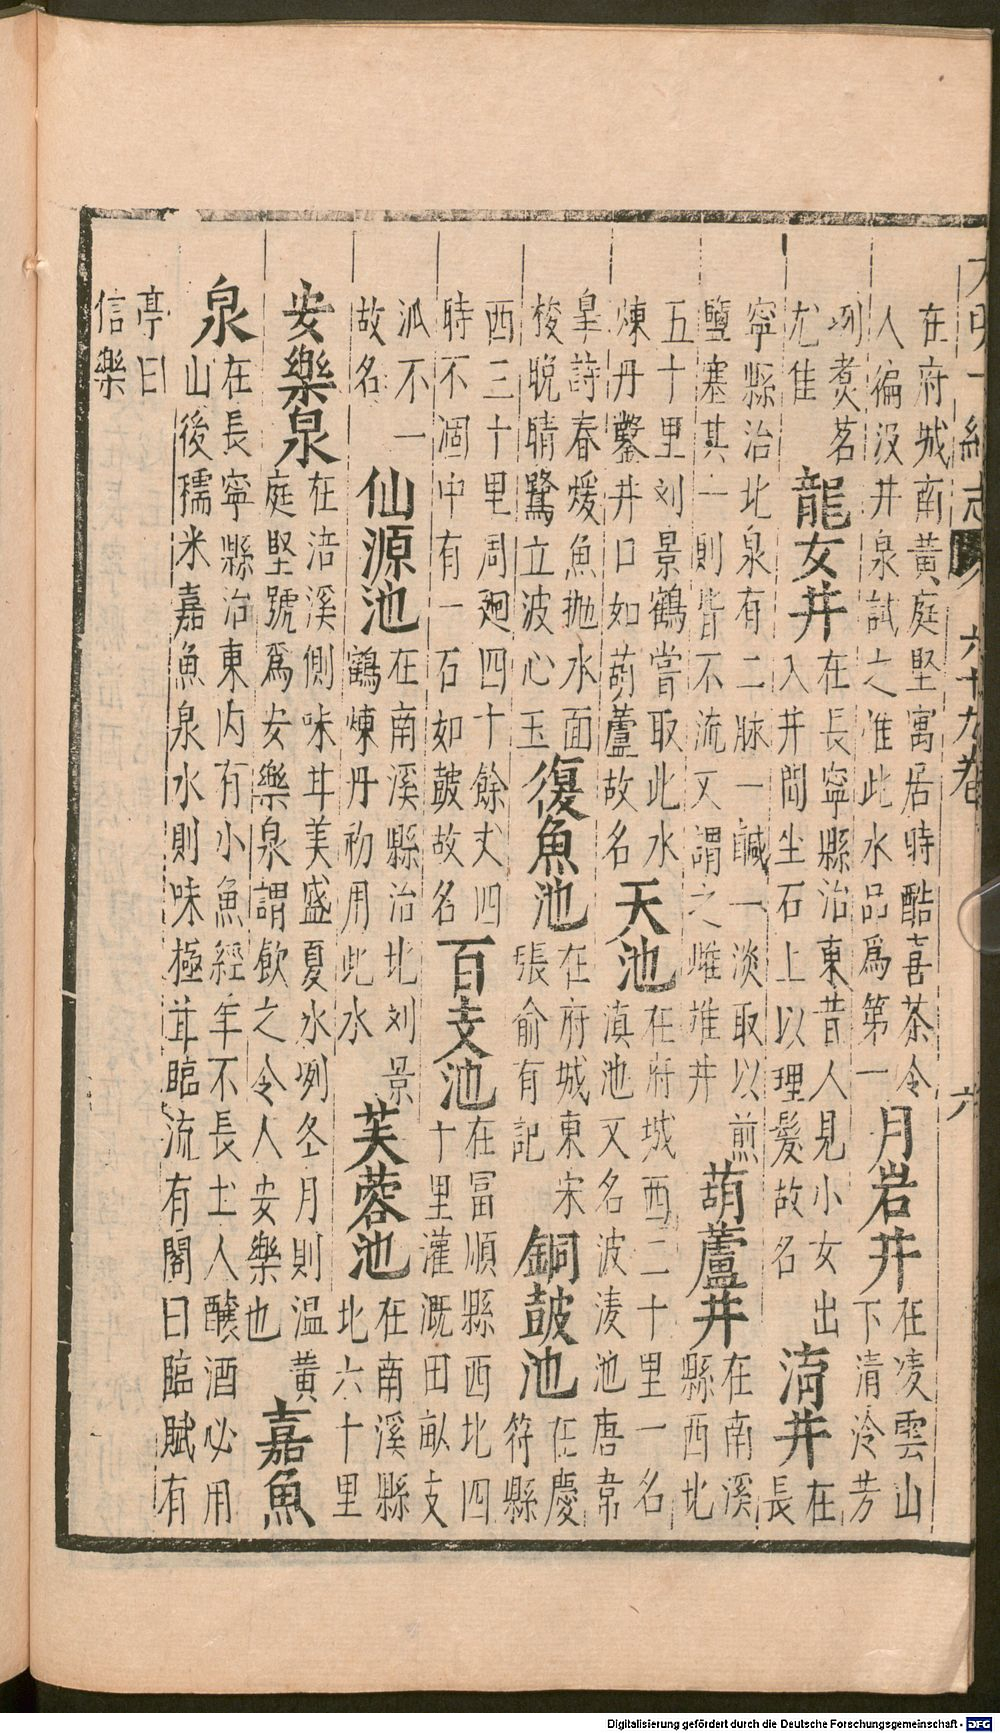 大明一統志 六十九卷 六
在府城南黃庭堅寓居時酷喜茶令
人徧汲井泉試之惟此水品爲第一
月岩井
在凌雲山
下清泠芳
冽煑茗
尤佳
龍女井
在長寧縣治東昔人見小女出
入井間坐石上以理髮故名
淯井
在
長
寧縣治北泉有二脉一鹹一淡取以煎
鹽塞其一則皆不流又謂之雌雄井
葫蘆井
在南溪
縣西北
五十里刘景鶴嘗取此水
煉丹鑿井口如葫蘆故名
天池
在府城西二十里一名
滇池又名波凄池唐韋
皐詩春煖魚抛水面
梭晩晴鷺立波心玉
復魚池
在府城東宋
張俞有記
銅皷池
在慶
符縣
西三十里周廻四十餘丈四
時不涸中有一石如皷故名
百支池
在富順縣西北四
十里灌溉田畝支
派不一
故名
仙源池
在南溪縣治北刘景
鶴煉丹初用此水
芙蓉池
在南溪縣
北六十里
安樂泉
在涪溪側味甘美盛夏水冽冬月則温黄
庭堅號爲安樂泉謂飲之令人安樂也
嘉魚
泉
在長寧縣治東内有小魚經年不長土人釀酒必用
山後糯米嘉魚泉水則味極甘臨流有閣曰臨賦有
亭曰
信樂
Digitalisierung gefördert durch die Deutsche Forschungsgemeinschaft - DFG